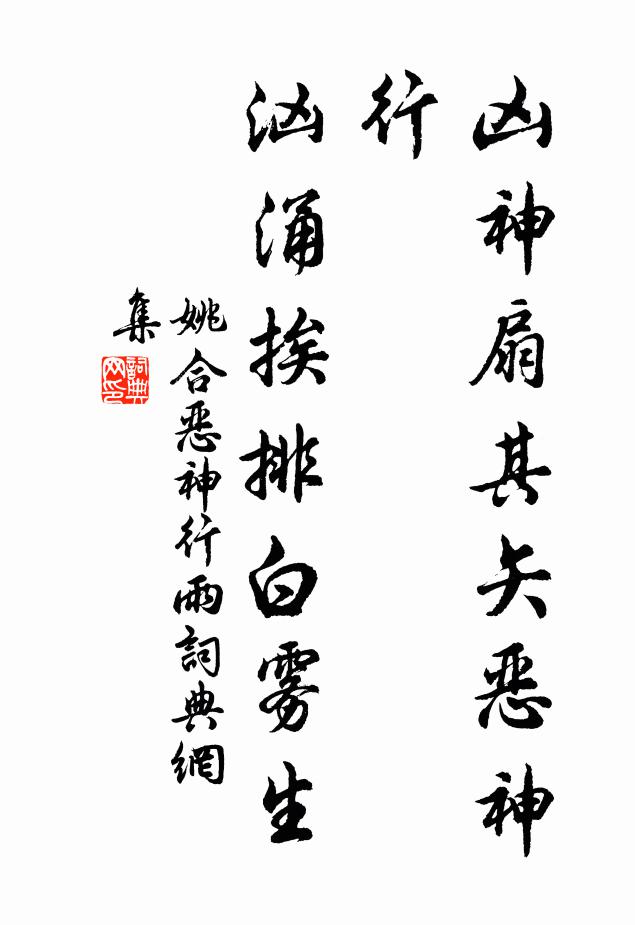 凶神扇其矢恶神
行
汹涌挨排白雾生
姚合恶神行雨詞典網
集
詞典
网印